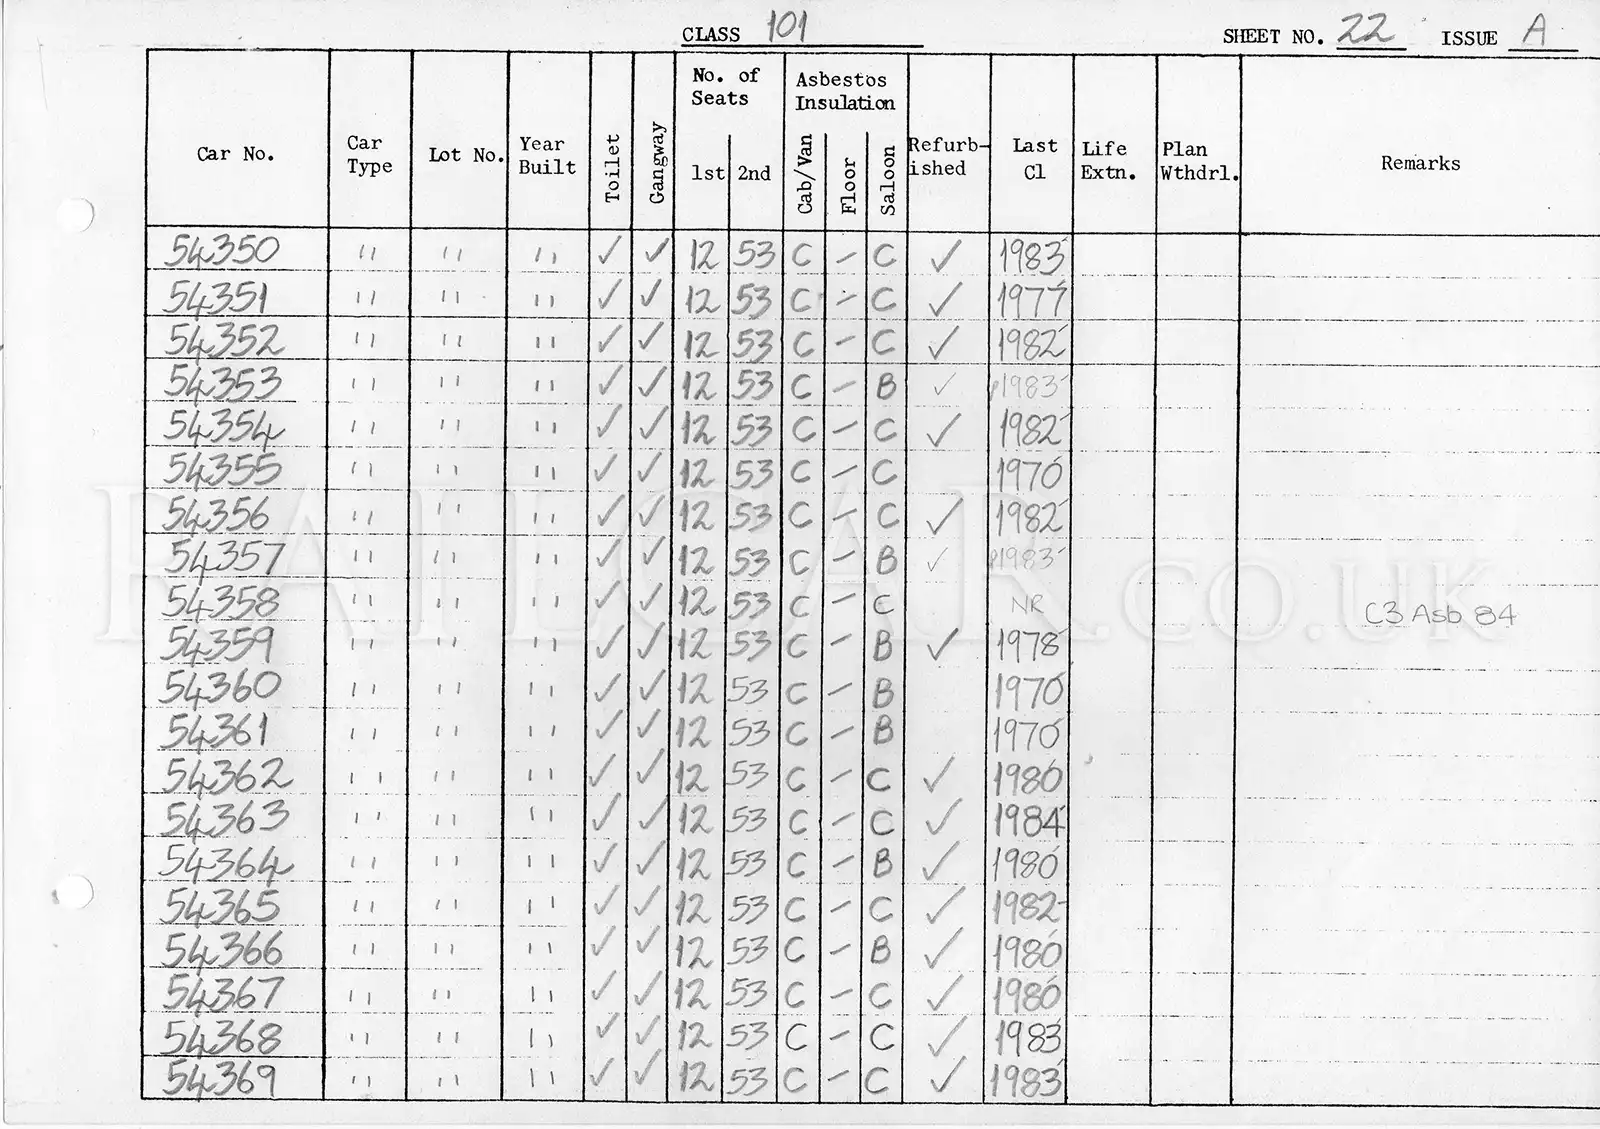 CLASS 101 SHEET NO. 22 ISSUE A
Car No. Car Type Lot No. Year Built Toilet Gangway No. of Seats 1st 2nd Asbestos Insulation Cab/Van Floor Saloon Refurb-ished Last Cl Life Extn. Plan Wthdrl. Remarks
54350 " " " ✓ ✓ 12 53 C - C ✓ 1983
54351 " " " ✓ ✓ 12 53 C - C ✓ 1977
54352 " " " ✓ ✓ 12 53 C - C ✓ 1982
54353 " " " ✓ ✓ 12 53 C - B ✓ p1983
54354 " " " ✓ ✓ 12 53 C - C ✓ 1982
54355 " " " ✓ ✓ 12 53 C - C 1970
54356 " " " ✓ ✓ 12 53 C - C ✓ 1982
54357 " " " ✓ ✓ 12 53 C - B ✓ p1983
54358 " " " ✓ ✓ 12 53 C - C NR C3 Asb 84
54359 " " " ✓ ✓ 12 53 C - B ✓ 1978
54360 " " " ✓ ✓ 12 53 C - B 1970
54361 " " " ✓ ✓ 12 53 C - B 1970
54362 " " " ✓ ✓ 12 53 C - C ✓ 1980
54363 " " " ✓ ✓ 12 53 C - C ✓ 1984
54364 " " " ✓ ✓ 12 53 C - B ✓ 1980
54365 " " " ✓ ✓ 12 53 C - C ✓ 1982
54366 " " " ✓ ✓ 12 53 C - B ✓ 1980
54367 " " " ✓ ✓ 12 53 C - C ✓ 1980
54368 " " " ✓ ✓ 12 53 C - C ✓ 1983
54369 " " " ✓ ✓ 12 53 C - C ✓ 1983
RAILCAR.CO.UK